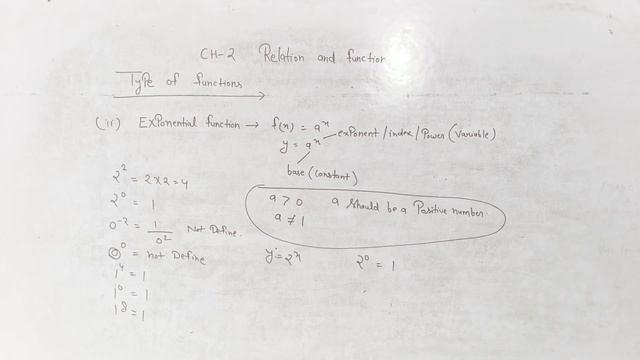 CH-2 Relation and function
Type of functions
(ii) Exponential function → f(x) = aˣ
y = aˣ exponent/index/Power (Variable)
base (constant)
2² = 2×2=4
2⁰ = 1
0⁻² = 1/0² Not Define.
0⁰ = not Define
1⁴ = 1
1⁰ = 1
1⁸ = 1
a > 0 a should be a Positive number.
a ≠ 1
y = 2ˣ 2⁰ = 1